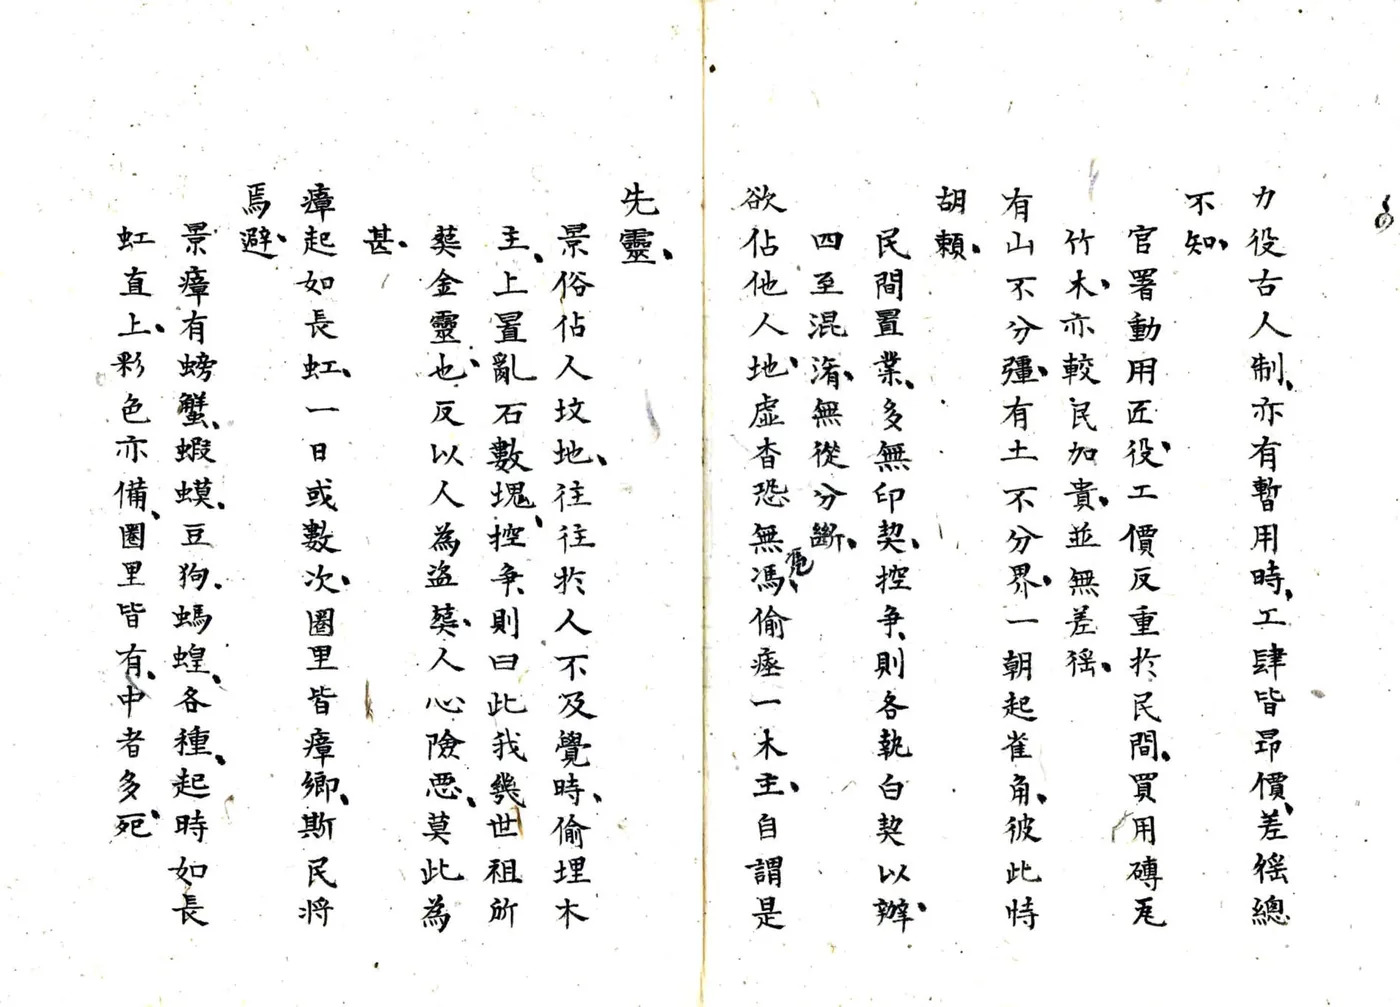 力役古人制、亦有暫用時、工肆皆昂價、差徭總
不知、
官署動用匠役、工價反重於民間、買用磚瓦
竹木、亦較民加貴、並無差徭、
有山不分彊、有土不分界、一朝起雀角、彼此恃
胡賴、
民間置業、多無印契、控爭、則各執白契以辦、
四至混淆、無從分斷、
欲佔他人地、虛杳恐無馮、偷瘞一木主、自謂是
憑
先靈、
景俗佔人墳地、往往於人不及覺時、偷埋木
主、上置亂石數塊、控爭、則曰此我幾世祖所
葬金靈也、反以人為盜葬、人心險惡、莫此為
甚、
瘴起如長虹、一日或數次、圈里皆瘴鄉、斯民將
焉避、
景瘴有螃蟹、蝦蟆、豆狗、螞蝗、各種、起時如長
虹直上、彩色亦備、圈里皆有、中者多死、